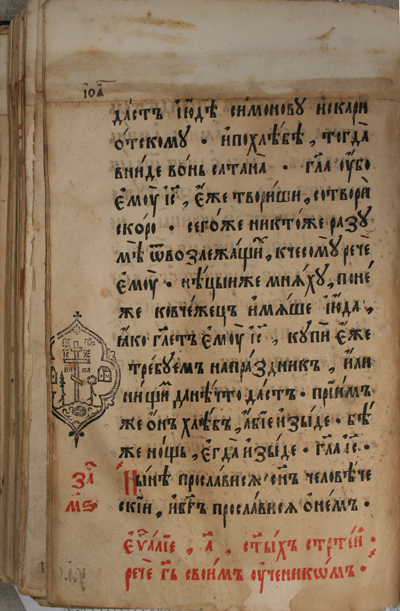 іѡа҃
да́стъ іꙋ́дѣ си́монову и҆скарі
о́тскому · и҆похлѣ́бѣ , тогда̀
вни́де во́нь сатана̀ · гл҃а ѹ҆́бо
є҆моꙋ̀ і҆с҃ , є҆́же твори́ши , сотворѝ
ско́ро · сего́же никто́же разу
мѣ̀ ѿвозлежа́щиⷯ , кчесо́мꙋ речѐ
є҆моꙋ̀ · нѣ́цыиже мня́хꙋ , поне́
же ковче́жецъ и҆мя́ше і҆ꙋ́да ,
ꙗ҆́ко гл҃етъ є҆моꙋ̀ і҆с҃ , кꙋпѝ є҆́же
тре́буемъ напра́здникъ , и҆лѝ
ни́щиⷨ данѣ́что да́стъ · прїи́мъ
же о҆́нъ хлѣ́бъ , а҆́бїе и҆зы́де · бѣ́
же но́щь , є҆гда̀ и҆зы́де · гл҃а і҆с҃ ·
Ны́нѣ просла́вися сн҃ъ человѣ́че
скїй , и҆бг҃ъ просла́вися ѡ҆не́мъ ·
за҃
м҃ѕ
є҆ѵⷢ҇а́лїе , а҃ , ст҃ы́хъ стрⷭ҇тїй ·
речѐ гд҃ь свои́мъ ѹ҆ченикѡ́мъ ·